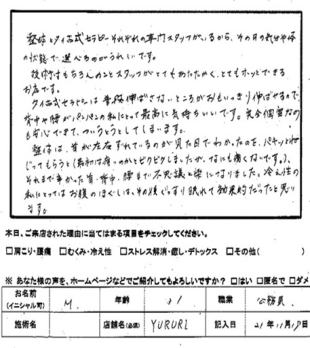 整体とタイ古式セラピーそれぞれの専門スタッフがいるから、その月の気分や体
の状態で選べるのがうれしいです。
技術はもちろんのことスタッフがとてもあたたかく、とてもホッとできる
お店です。
タイ古式セラピーは普段伸ばさないところがおもいっきり伸ばせるので、
背中や腰がパンパンの私にとって最高に気持ちいいです。完全個室なの
も安心できて、ついうとうとしてしまいます。
整体は、首が左右ずれているのが見た目でわかったのを、バキッと
じってもらうと（最初は痛いのかとビクビクしましたが、なにも痛くないです。）、
それまで辛かった首、背中、腰まで不思議と楽になりました。冷え性の
私にとってはお腹のほぐしは、その後ぐっすり眠れて効果的だったと思い
ます。
本日、ご来店された理由に当てはまる項目をチェックしてください。
□肩こり・腰痛 □むくみ・冷え性 □ストレス解消・癒し・デトックス □その他（
※ あなた様の声を、ホームページなどでご紹介してもよろしいですか？ □はい □匿名で □ダメ
お名前 (イニシャル可) M. 年齢 21 職業 公務員
施術名 店舗名(必須) YURURI 記入日 21年11月17日